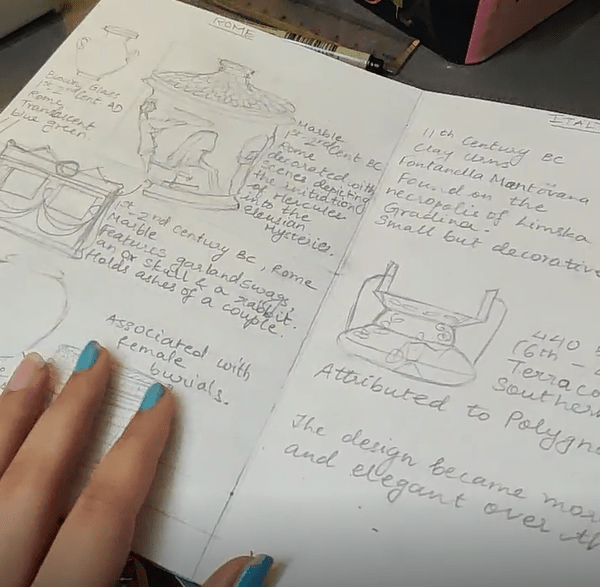 ROME
1st-2nd Cent AD
Rome
Translucent
blue green.
Marble
1st-2nd Cent BC
Rome
decorated with
scenes depicting
the initiation
of Hercules
into the
Eleusian
Mysteries.
1st - 2nd Century BC, Rome
Marble
Features garland swags,
an ox skull & a rabbit.
Holds ashes of a couple.
Associated with
female
burials.
ITAL
11th Century BC
Clay Urns
Fontanella Mantovana
Found on the
necropolis of Limska
Gradina.
Small but decorative
440
(6th -
Terraco
Southern
Attributed to Polygno
The design became mor
and elegant over th